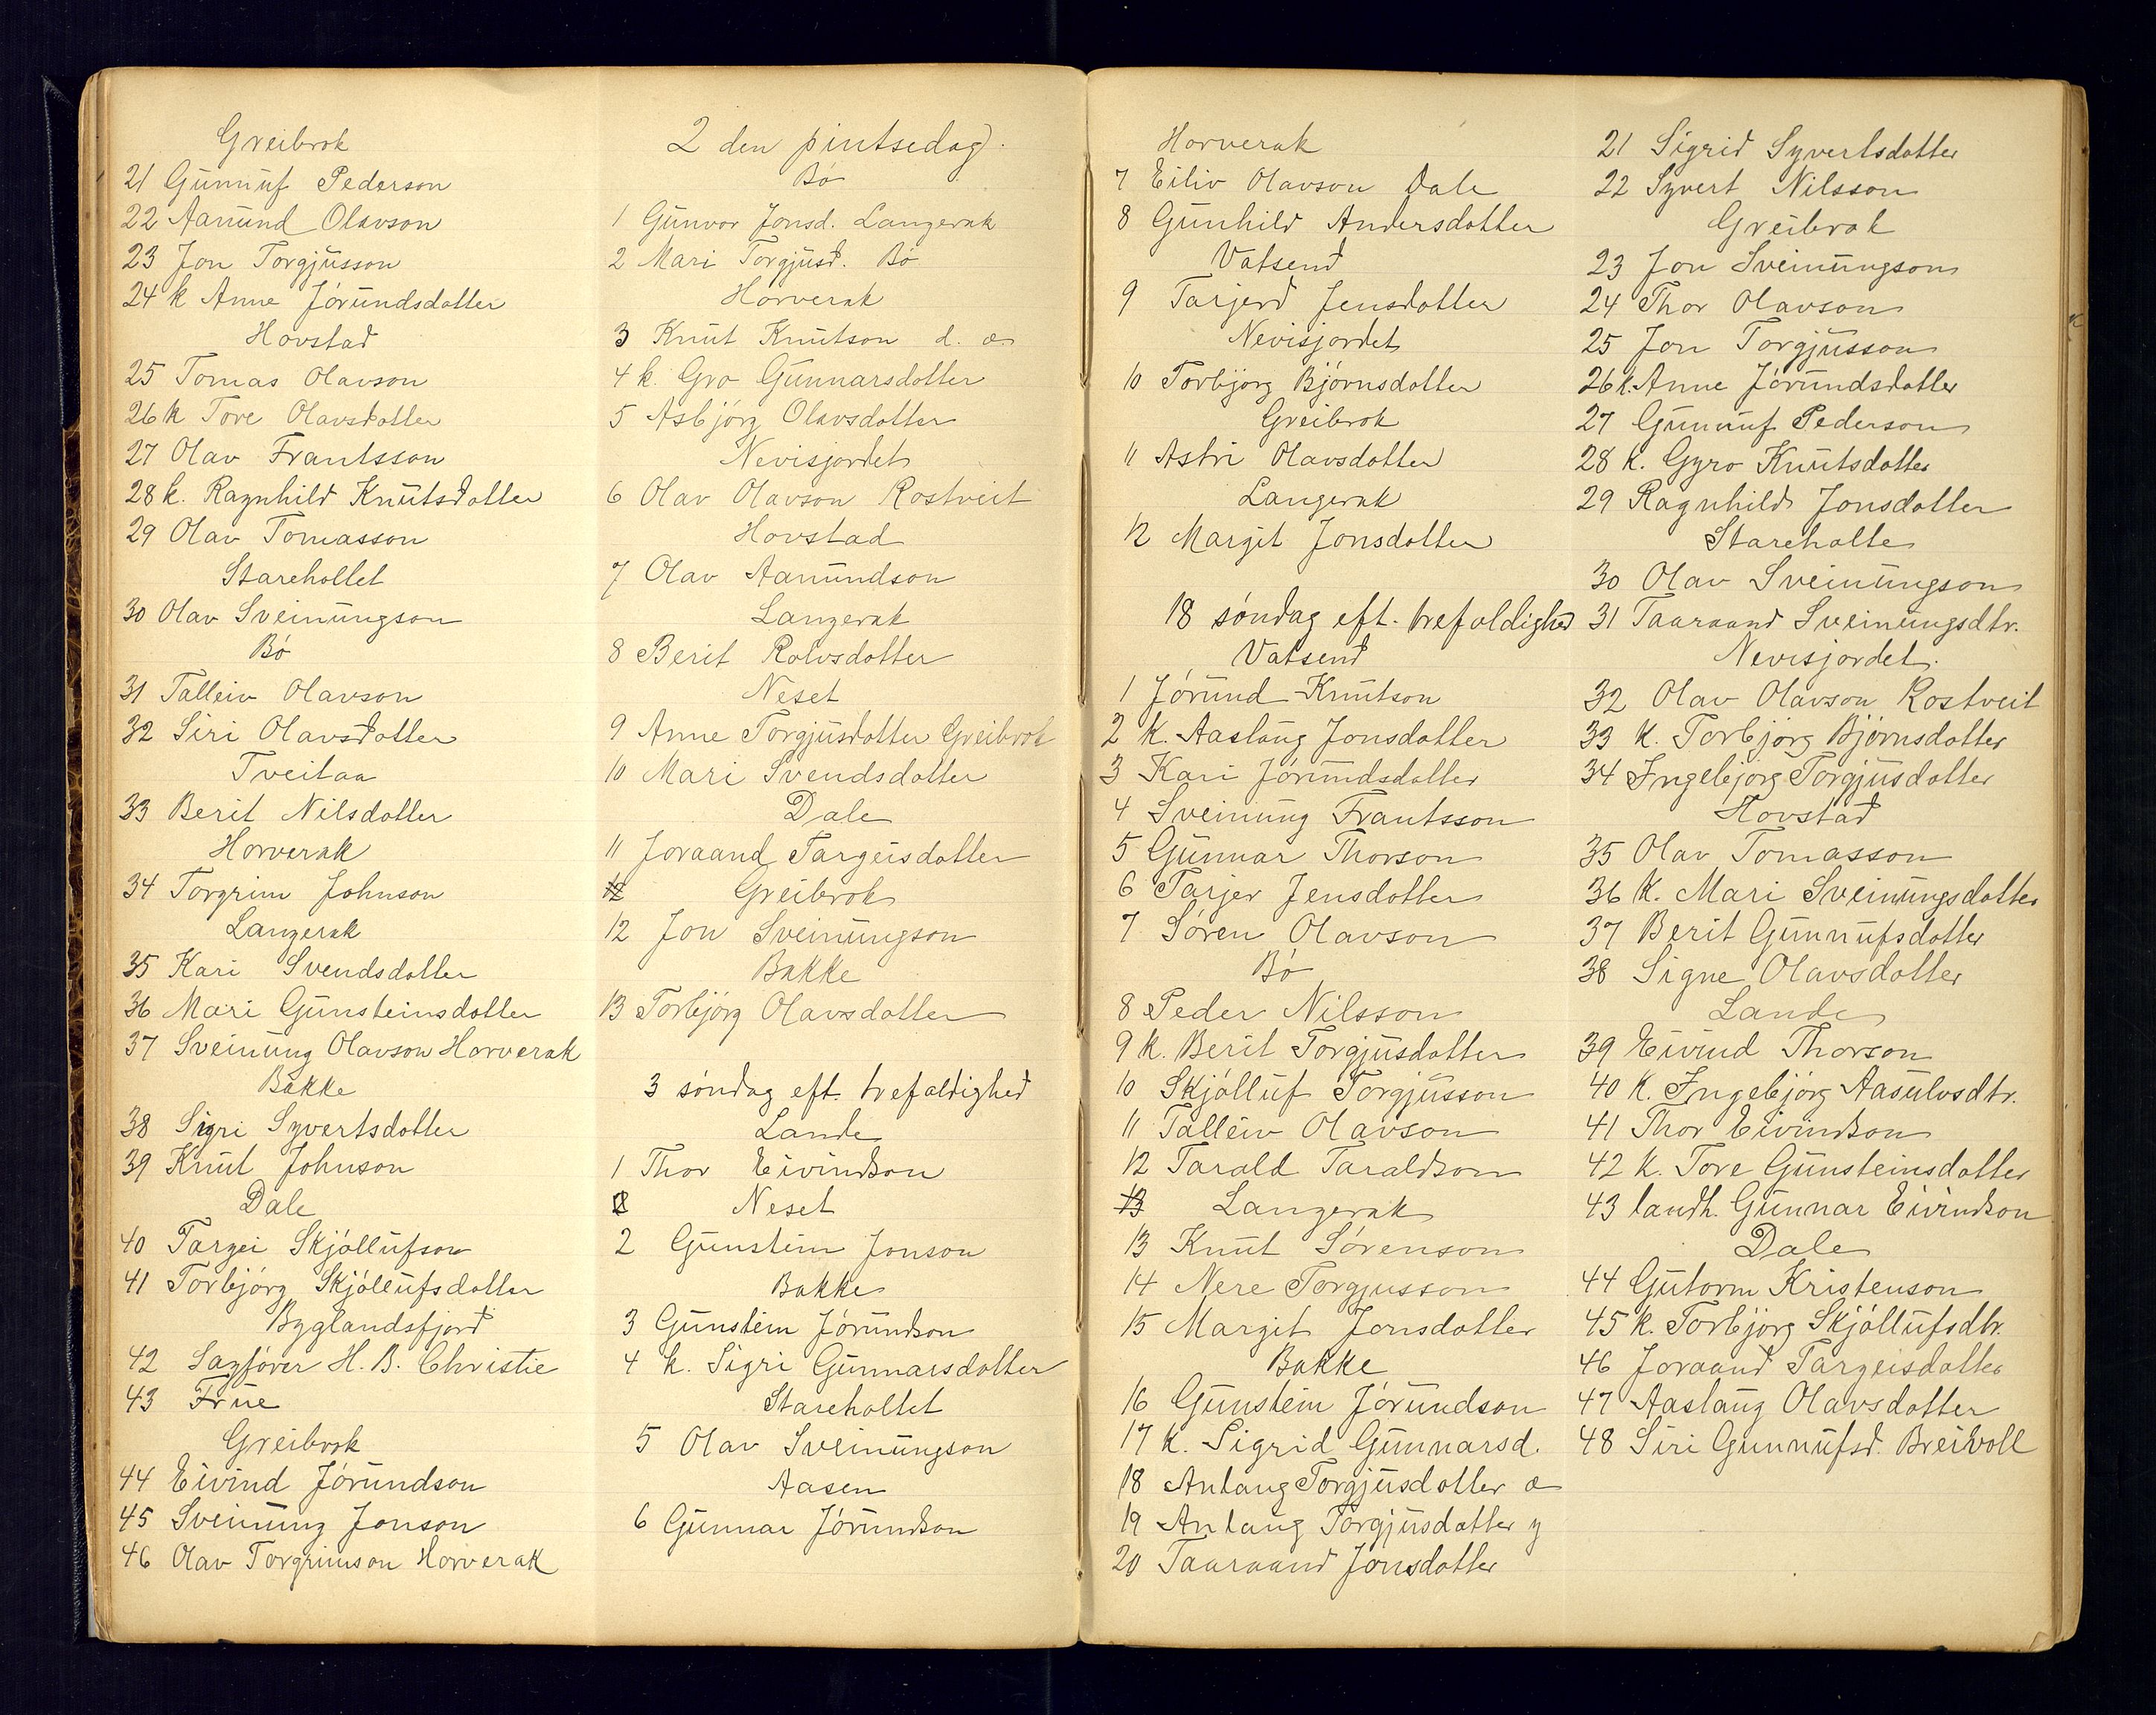 Greibrok
21 Gunnuf Pederson
22 Aanund Olavson
23 Jon Torgjusson
24 k Anne Jórundsdatter
Hovstad
25 Tomas Olavson
26 k Tore Olavsdatter
27 Olav Frantsson
28 k. Ragnhild Knutsdatter
29 Olav Tomasson
Stareholtet
30 Olav Sveinungson
Bó
31 Talleiv Olavson
32 Siri Olavsdatter
Tveitaa
33 Berit Nilsdotter
Horverak
34 Torgrim Johnson
Langerak
35 Kari Svendsdotter
36 Mari Gunsteinsdotter
37 Sveinung Olavson Horverak
Bakke
38 Sigri Syvertsdotter
39 Knut Johnson
Dale
40 Targei Skjóllufson
41 Torbjórg Skjóllufsdotter
Byglandsfjord
42 Sagfórer H. B. Christie
43 Frue
Greibrok
44 Eivind Jórundson
45 Sveinung Jonson
46 Olav Torgrimson Horverak
2 den pintsedag
Bó
1 Gunvor Jonsd. Langerak
2 Mari Torgjusd. Bó
Horverak
3 Knut Knutson d. æ.
4 k. Gro Gunnarsdotter
5 Asbjórg Olavsdotter
Nevisjordet
6 Olav Olavson Rostveit
Hovstad
7 Olav Aanundson
Langerak
8 Berit Rolvsdotter
Neset
9 Anne Torgjusdatter Greibrok
10 Mari Svendsdotter
Dale
11 Joraand Targeisdotter
12 Greibrok
12 Jon Sveinungson
Bakke
13 Torbjórg Olavsdotter
3 sóndag eft. trefoldighed
Lande
1 Thor Eivindson
2 Neset
2 Gunstein Jonson
Bakke
3 Gunstein Jórundson
4 k. Sigri Gunnarsdotter
Stareholtet
5 Olav Sveinungson
Aasen
6 Gunnar Jórundson
Horverak
7 Eiliv Olavson Dale
8 Gunhild Andersdotter
Vatsend
9 Tarjerd Jensdotter
Nevisjordet
10 Torbjórg Bjórnsdotter
Greibrok
11 Astri Olavsdotter
Langerak
12 Margit Jonsdotter
18 sóndag eft. trefoldighed
Vatsend
1 Jórund Knutson
2 k. Aaslaug Jonsdotter
3 Kari Jórundsdotter
4 Sveinung Frantsson
5 Gunnar Thorson
6 Tarjer Jensdotter
7 Sóren Olavson
Bó
8 Peder Nilsson
9 k. Berit Torgjusdotter
10 Skjólluf Torgjusson
11 Talleiv Olavson
12 Tarald Taraldson
13 Langerak
13 Knut Sórenson
14 Nere Torgjusson
15 Margit Jonsdotter
Bakke
16 Gunstein Jórundson
17 k. Sigrid Gunnarsd.
18 Anlaug Torgjusdotter æ
19 Anlaug Torgjusdotter y
20 Taaraand Jonsdotter
21 Sigrid Syvertsdotter
22 Syvert Nilsson
Greibrok
23 Jon Sveinungson
24 Thor Olavson
25 Jon Torgjusson
26 k. Anne Jórundsdotter
27 Gunnuf Pederson
28 k. Gyro Knutsdotter
29 Ragnhild Jonsdotter
Stareholte
30 Olav Sveinungson
31 Taaraand Sveinungsdtr.
Nevisjordet.
32 Olav Olavson Rostveit
33 k. Torbjórg Bjórnsdotter
34 Ingebjórg Torgjusdotter
Hovstad
35 Olav Tomasson
36 k. Mari Sveinungsdotter
37 Berit Gunnufsdotter
38 Signe Olavsdotter
Lande
39 Eivind Thorson
40 k. Ingebjórg Aasulvsdtr.
41 Thor Eivindson
42 k. Tore Gunsteinsdotter
43 landh. Gunnar Eivindson
Dale
44 Gutorm Kristenson
45 k. Torbjórg Skjóllufsdtr.
46 Joraand Targeisdotter
47 Aaslaug Olavsdotter
48 Siri Gunnufsd. Breivoll